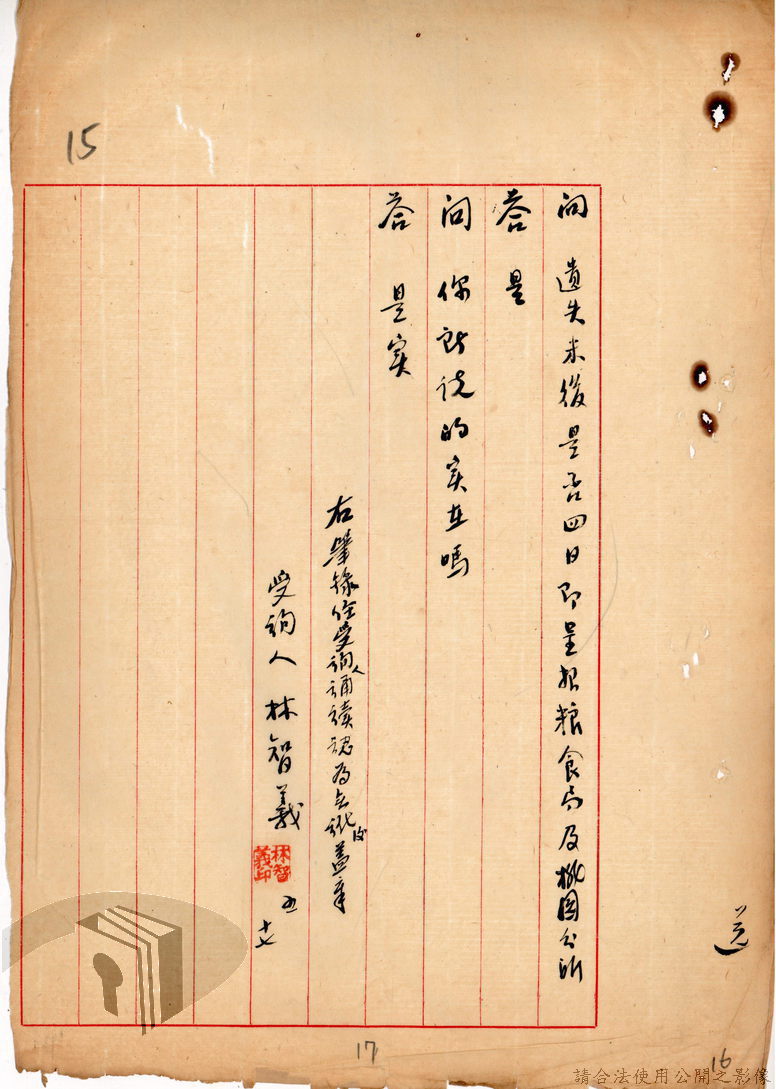 15
問 遺失米後是否四日即呈报粮食局及桃園分所
答 是
问 你所说的实在嗎
答 是实
右筆錄经受詢人誦读認為无訛後蓋章
受詢人 林智義
林智義印
五 十七
送
17
16
請合法使用公開之影像